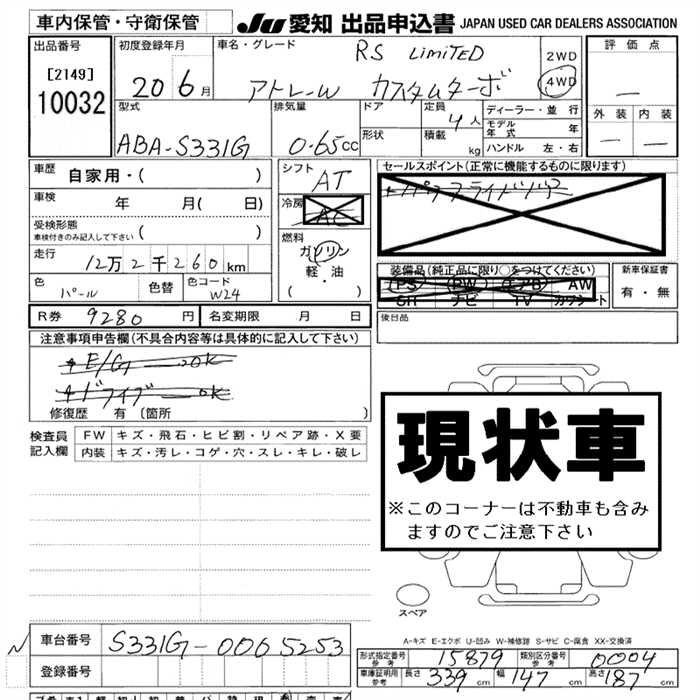 車内保管・守衛保管
JU 愛知 出品申込書 JAPAN USED CAR DEALERS ASSOCIATION
出品番号
[2149]
10032
初度登録年月
20 6月
車名・グレード
RS LIMITED
アトレーW カスタムターボ
2WD
4WD
評価点
—
外装 内装
— —
型式
ABA-S331G
排気量
0.65cc
ドア
形状
定員
4人
積載
kg
ディーラー・並行
モデル年式 年
ハンドル 左・右
車歴
自家用・( )
車検
年 月( 日)
受検形態
車検付きのみ記入して下さい ( )
走行
12万2千260km
色
パール
色替
色コード
W24
シフト
AT
冷房
AC
燃料
ガソリン
軽・油
( )
セールスポイント(正常に機能するものに限ります)
装備品(純正品に限り○をつけてください)
PS PW エアB AW
SR ナビ TV カワシート
新車保証書
有・無
後日品
R券 9280円 名変期限 月 日
注意事項申告欄(不具合内容等は具体的に記入して下さい)
+E/G — OK
+ドライブ — OK
修復歴 有〔箇所 〕
検査員記入欄
FW キズ・飛石・ヒビ割・リペア跡・X要
内装 キズ・汚レ・コゲ・穴・スレ・キレ・破レ
現状車
※このコーナーは不動車も含み
ますのでご注意下さい
スペア
A-キズ E-エクボ U-凹み W-補修跡 S-サビ C-腐食 XX-交換済
車台番号 S331G-0065253
登録番号
形式指定番号 参考 15879 類別区分番号 参考 0004
車庫証明用 参考 長さ 339cm 幅 147cm 高さ 187cm